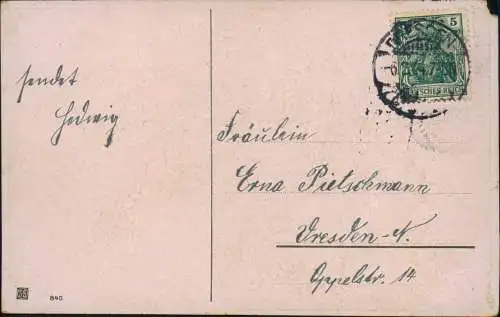 sendet
Hedwig
DRESDEN
5
DEUTSCHES REICH
Fräulein
Erna Pietschmann
Dresden-N.
Oppelstr. 14
840